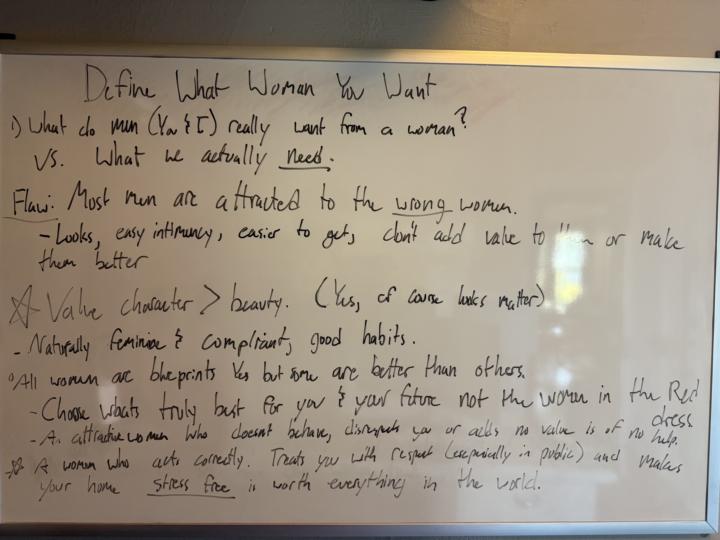 Define What Woman You Want
1) What do men (You & I) really want from a woman?
VS. What we actually need.
Flaw: Most men are attracted to the wrong women.
- Looks, easy intimuncy, easier to get, don't add value to them or make
them better
☆ - Value character > beauty. (Yes, of course looks matter)
- Naturally feminine & compliant, good habits.
° All women are blueprints Yes but some are better than others.
- Choose whats truly best for you & your future not the women in the Red
dress
- An attractive women who doesn't behave, disrespects you or adds no value is of no help.
☆ A woman who acts correctly. Treats you with respect (especially in public) and makes
your home stress free is worth everything in the world.